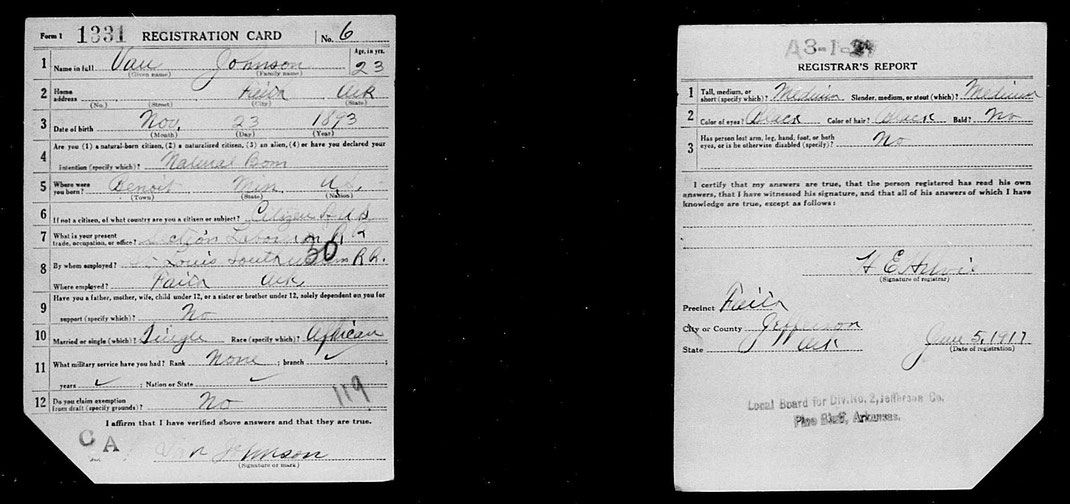 Form 1 1331 REGISTRATION CARD No. 6
1 Name in full Van Johnson Age, in yrs. 23
(Given name) (Family name)
2 Home address Faith Ark
(No.) (Street) (City) (State)
3 Date of birth Nov. 23 1893
(Month) (Day) (Year)
4 Are you (1) a natural-born citizen, (2) a naturalized citizen, (3) an alien, (4) or have you declared your
intention (specify which)? Natural Born
5 Where were you born? Benoit Miss U.
(Town) (State) (Nation)
6 If not a citizen, of what country are you a citizen or subject? Citizen of U S
7 What is your present trade, occupation, or office? Section Laborer on R R
30
8 By whom employed? St Louis Southwestern R R.
Where employed? Faith Ark.
9 Have you a father, mother, wife, child under 12, or a sister or brother under 12, solely dependent on you for
support (specify which)? No
10 Married or single (which)? Single Race (specify which)? African
11 What military service have you had? Rank None ; branch ✓ ;
years ✓ ; Nation or State ✓
12 Do you claim exemption from draft (specify grounds)? No
119
I affirm that I have verified above answers and that they are true.
C A
Van Johnson
(Signature or mark)
REGISTRAR'S REPORT
1 Tall, medium, or short (specify which)? Medium Slender, medium, or stout (which)? Medium
2 Color of eyes? Black Color of hair? Black Bald? No
3 Has person lost arm, leg, hand, foot, or both eyes, or is he otherwise disabled (specify)? No
I certify that my answers are true, that the person registered has read his own
answers, that I have witnessed his signature, and that all of his answers of which I have
knowledge are true, except as follows:
H E
(Signature of registrar)
Precinct Faith
City or County Jefferson
State Ark
June 5, 1917
(Date of registration)
Local Board for Div. No. 2, Jefferson Co.
Pine Bluff, Arkansas.